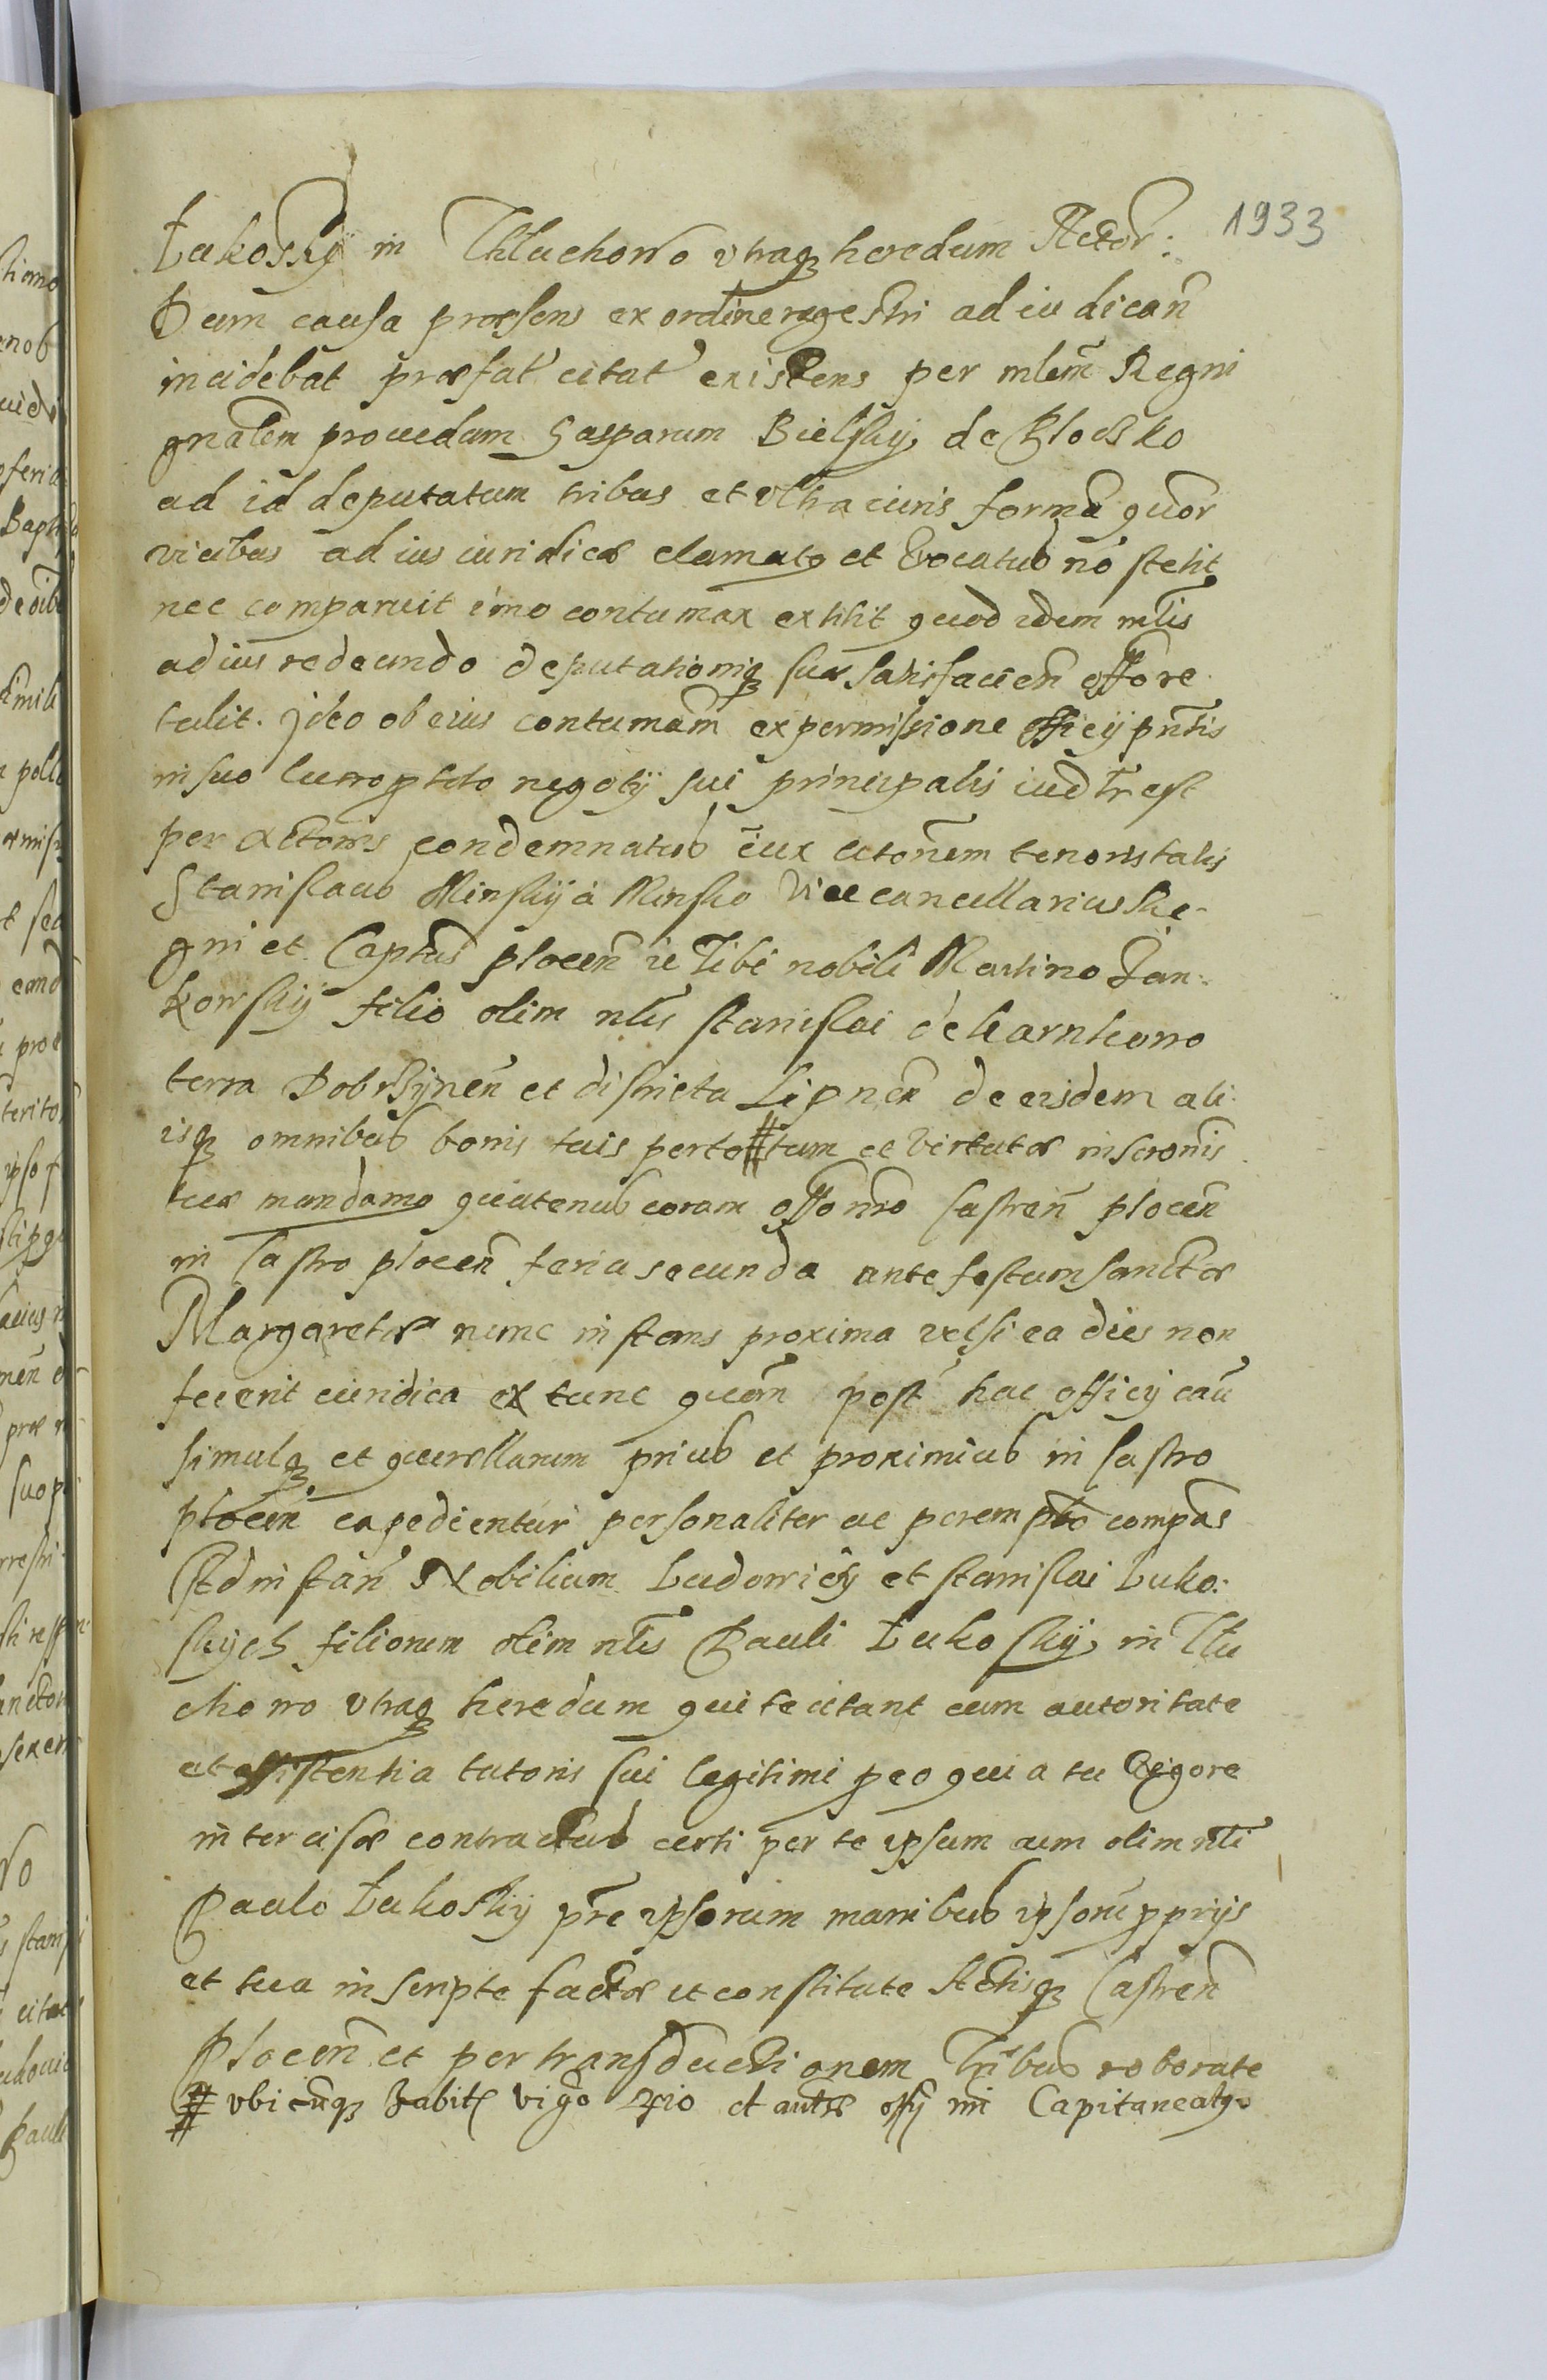 1933
Łukoskÿ in Thluchowo utraq heredum Actor:
Dum causa præsens ex ordine regestri ad iudican
incidebat præfat citat existens per mlem Regni
gnalem providum Gasparum Bielskij de Plocsko
ad id deputatum tribus et ultra iuris forma quor
vicibus ad ius iuridice clamatq et Vocatus nō stetit
nec comparuit imo contumax extitit quod idem mlis
ad ius redeundo deputationiq suæ satisfacien offo re
tulit. Ideo ob eius contumam ex permissione officÿ pntis
in suo lucro ptito negotÿ sui principalis iudtr est
per actores condemnatus iux citonem tenoris talis
Stanislaus Minskÿ à Minsko Vicecancellarius Re-
gni et Captus plocen ic Tibi nobili Martino Jan-
kowskÿ filio olim nlis Stanislai de Karnkowo
terra Dobrsÿnen et districtu Lipnen de eisdem ali-
isq omnibus bonis tuis perto # tum ac virtute inscronis
tuæ mandamo quatenus coram offo nro Castren plocen
in Castro plocen feria secunda ante festum sanctæ
Margaretæ nunc instans proxima vel si ea dies non
fecerit iuridica ex tunc quam post hac officij cau
simulq et querellarum prius et proximius in Castro
plocen expedientur personaliter ac perempto compas
Ad instan Nobilium Ludowici et Stanislai Luko-
skych filiorum olim nlis Pauli Łukoskÿ in Tlu
chowo utraq heredum qui te citant cum autoritate
et assistentia tutoris sui legitimi p eo quia tu Vigore
intercisæ contractus certi per te ipsum cum olim nli
Paulo Łukoskÿ pre ipsorum manibus ipsorū pprijs
et tua inscripte factæ et constitute Actisq Castren
Plocen et per transductionem Tribus roborate
# ubicunq habit vigo et autæ offÿ nri Capitaneatq